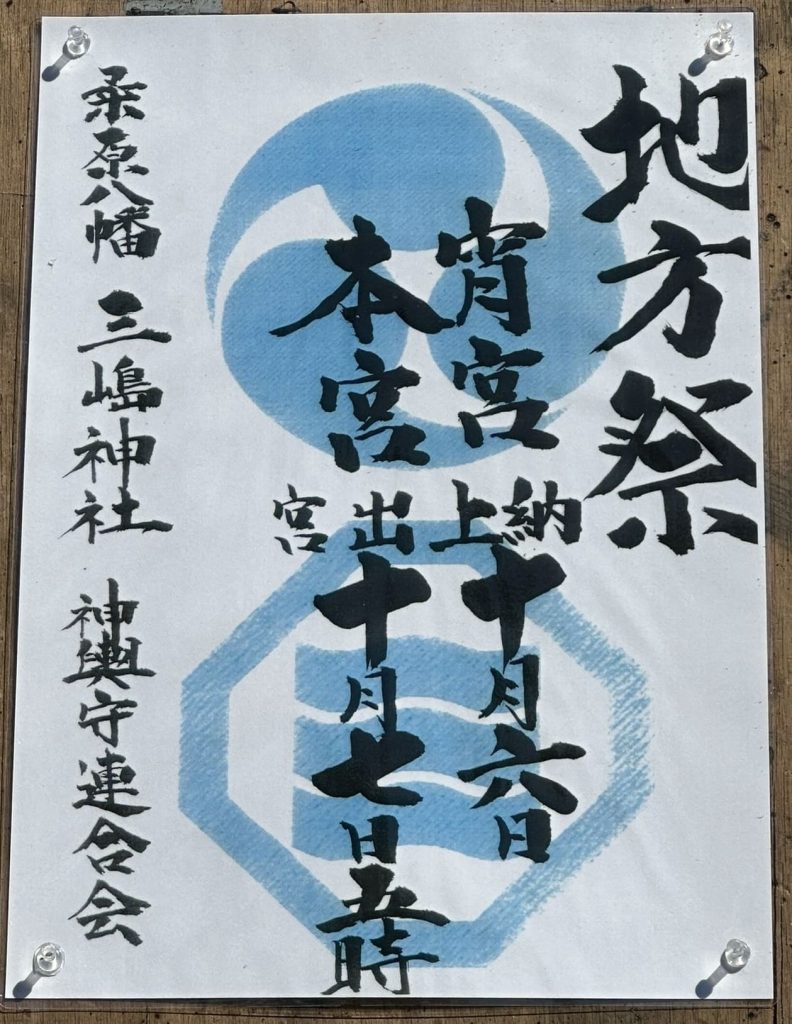 地方祭
宵宮 十月六日
納上
本宮 十月七日五時
出宮
桑原八幡 三嶋神社 神輿守連合会